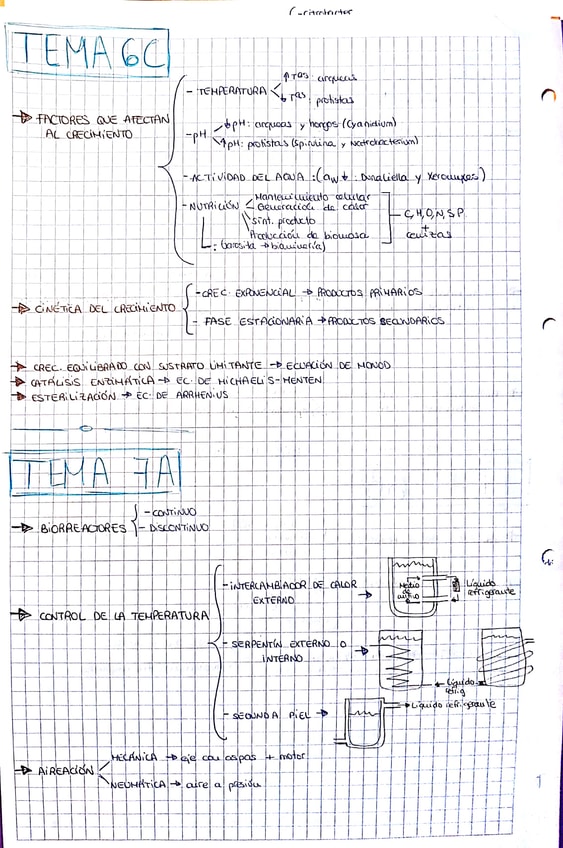 TEMA 6C
→ FACTORES QUE AFECTAN AL CRECIMIENTO
- TEMPERATURA
↑Tas: arqueas
↓Tas: protistas
- pH
↓pH: arqueas y hongos (Cyanidium)
↑pH: protistas (Spirulina y Natrobacterium)
- ACTIVIDAD DEL AGUA: (aw ↓: Dunaliella y Xeromyces)
- NUTRICIÓN
Mantenimiento celular
Generación de calor
Sínt. producto
Producción de biomasa
C, H, O, N, S, P
+
cenizas
→ CINÉTICA DEL CRECIMIENTO
- CREC. EXPONENCIAL → PRODUCTOS PRIMARIOS
- FASE ESTACIONARIA → PRODUCTOS SECUNDARIOS
→ CREC. EQUILIBRADO CON SUSTRATO LIMITANTE → ECUACIÓN DE MONOD
→ CATÁLISIS ENZIMÁTICA → EC. DE MICHAELIS-MENTEN
→ ESTERILIZACIÓN → EC. DE ARRHENIUS
TEMA 7A
→ BIORREACTORES
- CONTINUO
- DISCONTINUO
→ CONTROL DE LA TEMPERATURA
- INTERCAMBIADOR DE CALOR EXTERNO →
Medio de cultivo
Líquido refrigerante
- SERPENTÍN EXTERNO O INTERNO →
Líquido refrig
- SEGUNDA PIEL →
Líquido refrigerante
→ AIREACIÓN
MECÁNICA → eje con aspas + motor
NEUMÁTICA → aire a presión
1